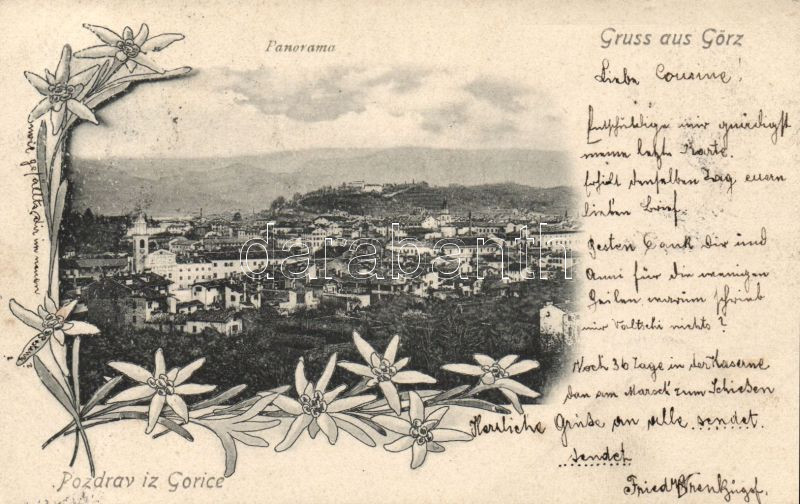 Panorama
Gruss aus Görz
Liebe Cousine!
Entschuldige mir gnädigst
meine lezte Karte.
Erhielt denselben Tag euern
lieben Brief.
Besten Dank Dir und
Anni für die wenigen
Zeilen warum schrieb
mir nichts?
Noch 36 Tage in der Kaserne
dan am Marsch zum Schiesen
Herzliche Grüße an alle sendet
sendet
Fried
wie gefällts Dir im neuen
Pozdrav iz Gorice
darabanth